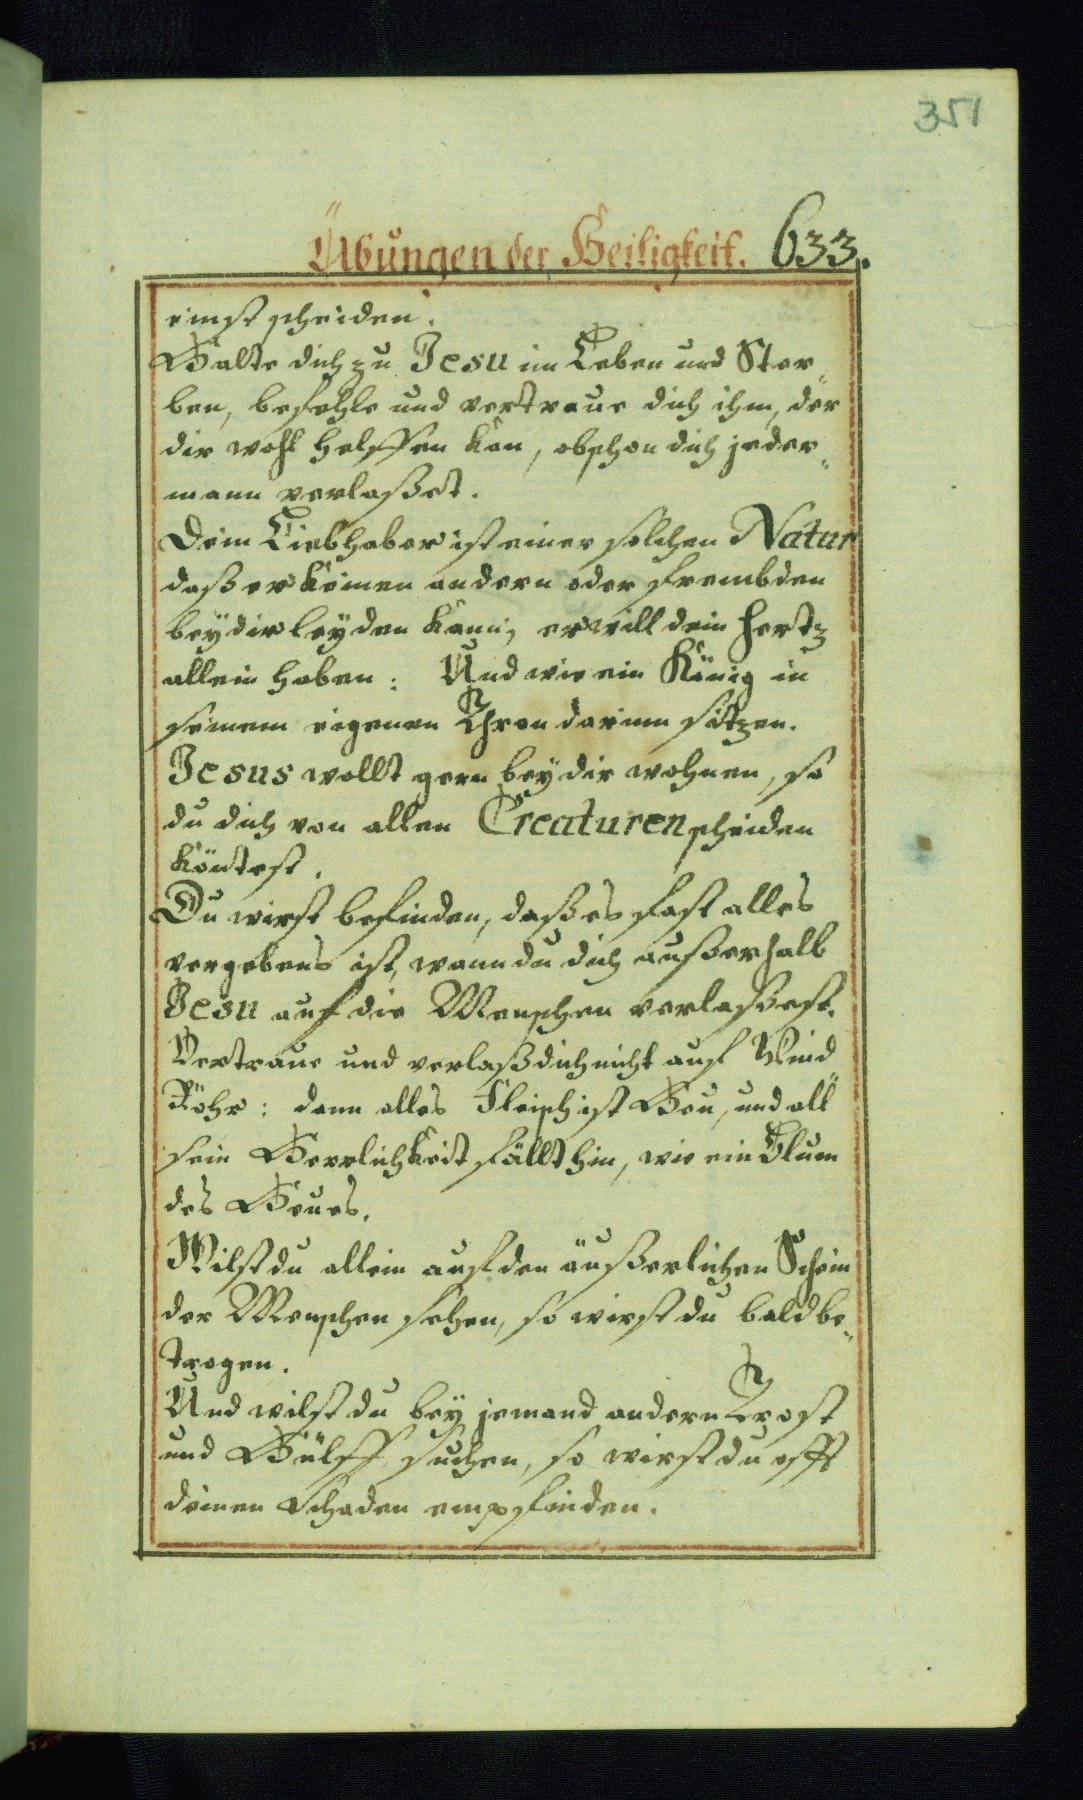 351
Übungen der Heiligkeit. 633.
einst scheiden.
Halte dich zu Jesu im Leben und Ster„
ben, befehle und vertraue dich ihm, der
dir wohl helffen kan, obschon dich jeder„
mann verlaßet.
Dein Liebhaber ist einer solchen Natur
daß er keinen andern oder frembden
beÿ dir leÿden kann, er will dein Hertz
allein haben: Und wie ein König in
seinem eigenen Thron darinn sitzen.
Jesus wollt gern beÿ dir wohnen, so
du dich von allen Creaturen scheiden
köntest.
Du wirst befinden, daß es fast alles
vergebens ist, wann du dich außerhalb
Jesu auf die Menschen verlaßest.
Vertraue und verlaß dich nicht auf Wind
Röhr: dann alles Fleisch ist Heu, und all
sein Herrlichkeit fällt hin, wie ein Blum
des Heues.
Wilst du allein auf den äußerlichen Schein
der Menschen sehen, so wirst du bald be„
trogen.
Und wilst du beÿ jemand andern Trost
und Hülff suchen, so wirst du offt
deinen Schaden empfinden.